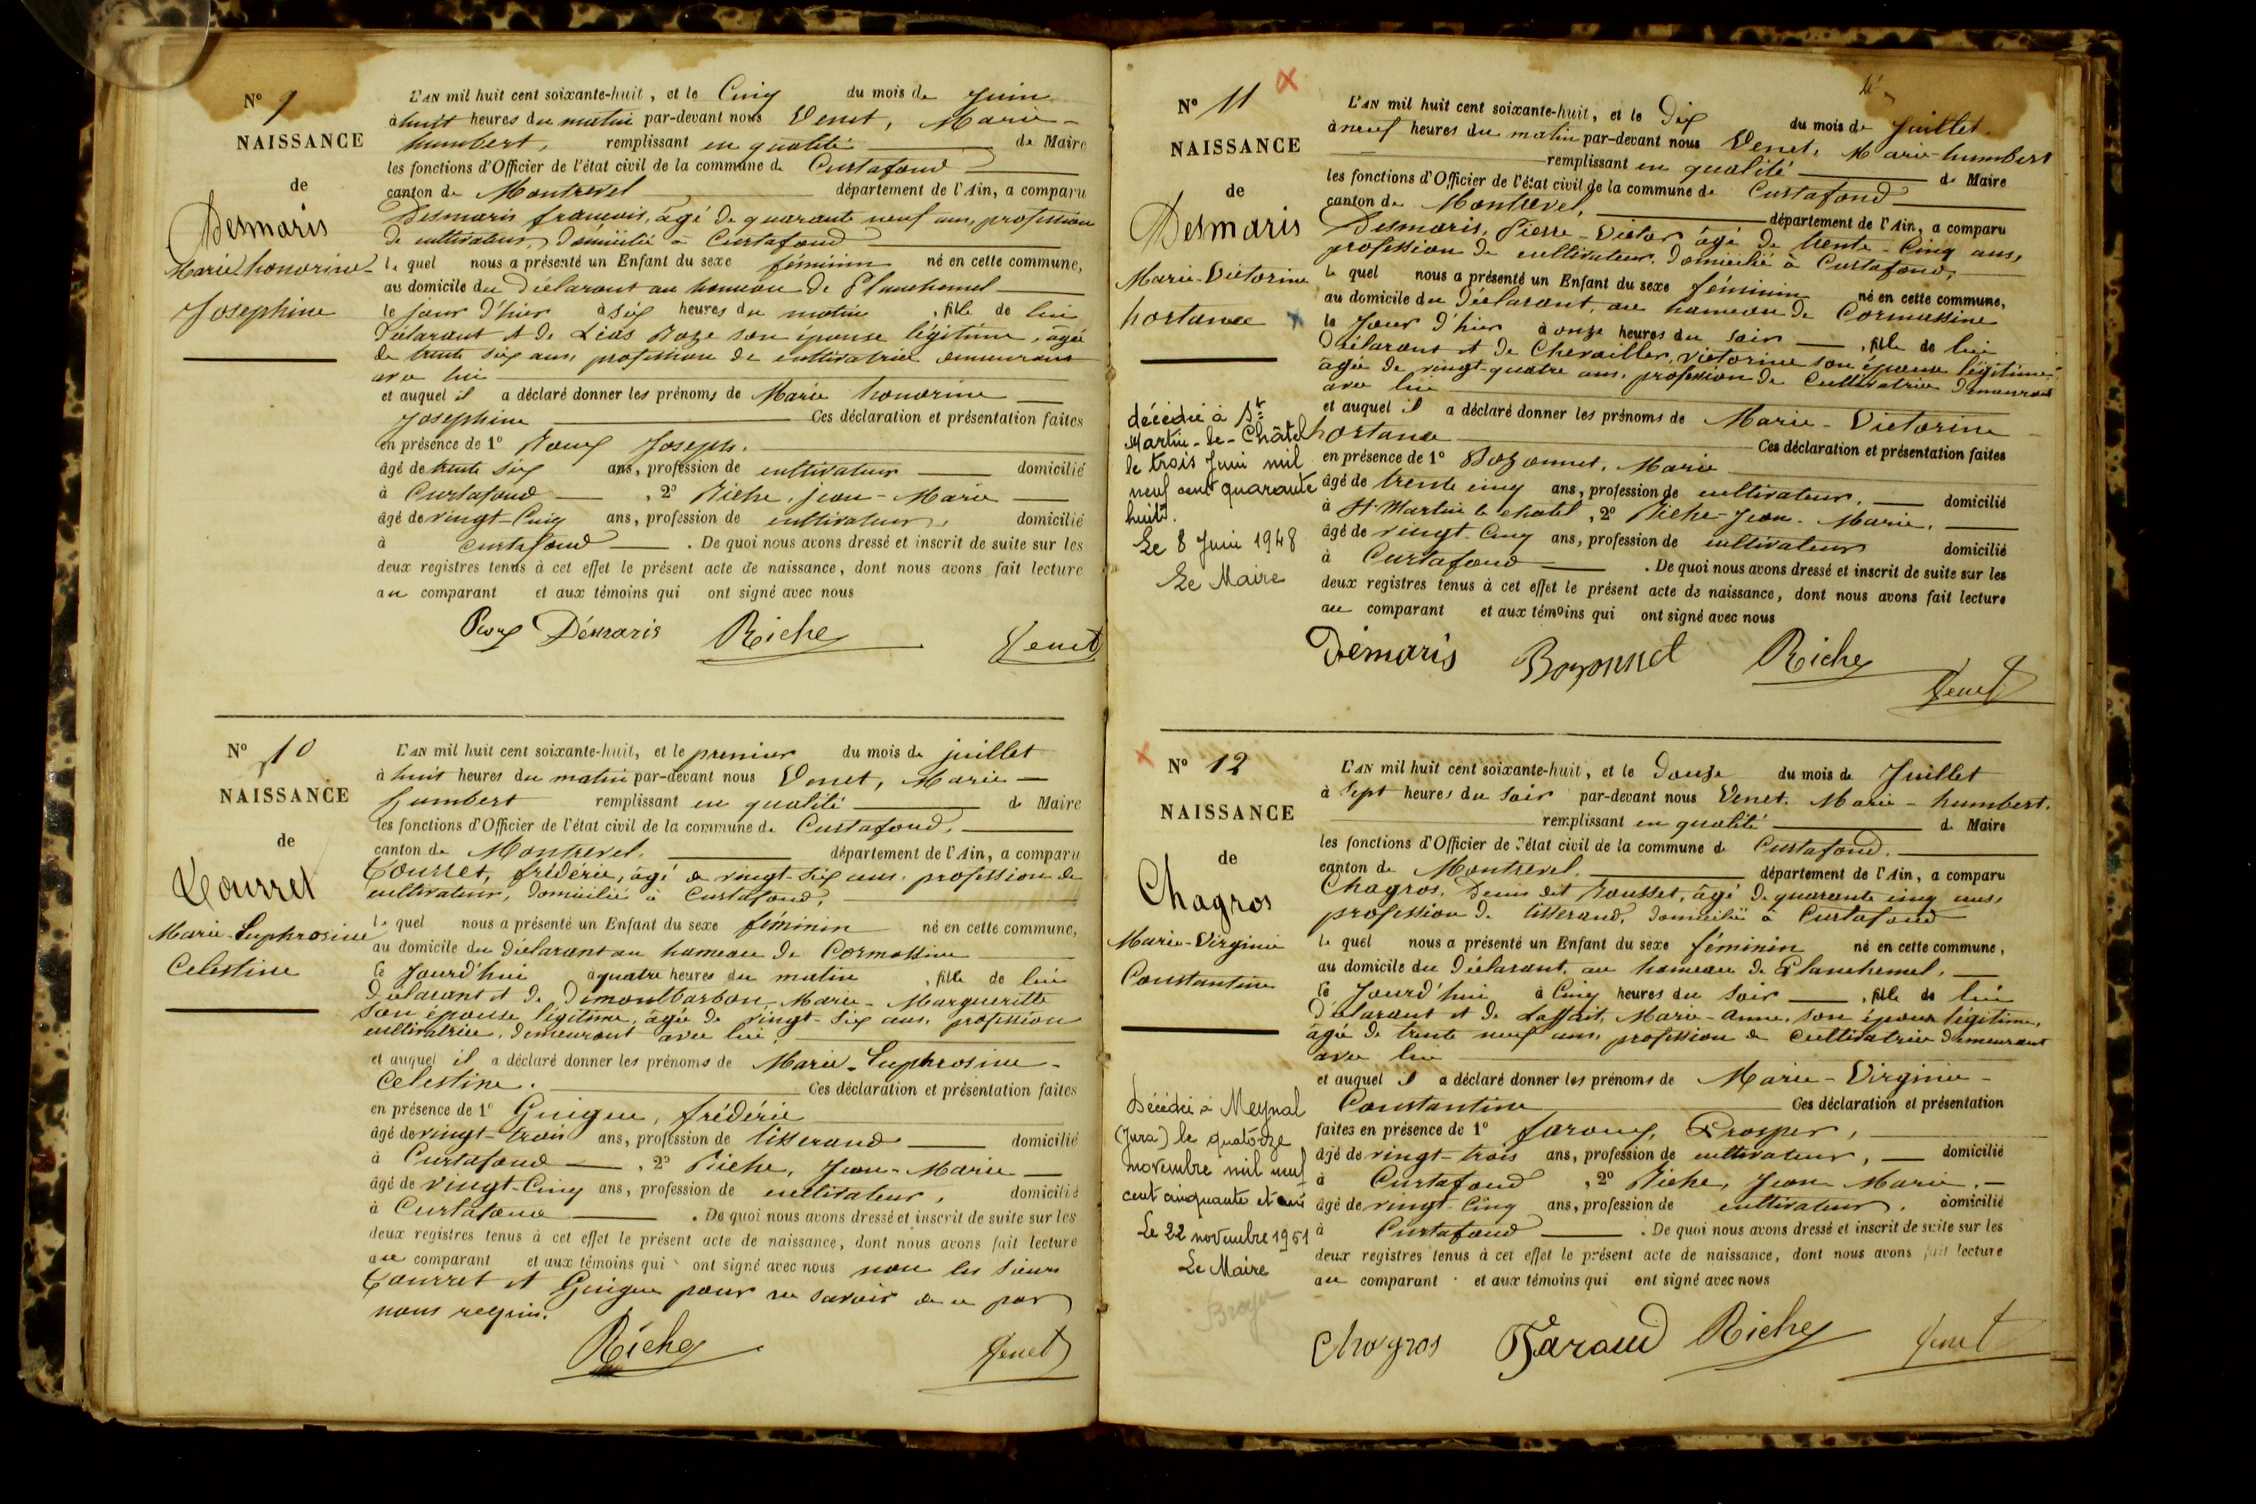 Nº 9
NAISSANCE
de
Desmaris
Marie honorine
Josephine
L'AN mil huit cent soixante-huit, et le Cinq du mois de Juin
à huit heures du matin par-devant nous Venet, Marie-
humbert, remplissant en qualité de Maire
les fonctions d'Officier de l'état civil de la commune de Curtafond
canton de Montrevel département de l'Ain, a comparu
Desmaris françois, âgé de quarante neuf ans, profession
de cultivateur, domicilié à Curtafond
le quel nous a présenté un Enfant du sexe féminin né en cette commune,
au domicile du Déclarant au hameau de Planchemel
le jour d'hier à six heures du matin, fille de lui
Déclarant et de Roze son épouse légitime, âgée
de trente six ans, profession de cultivatrice demeurant
avec lui
et auquel il a déclaré donner les prénoms de Marie honorine
Josephine Ces déclaration et présentation faites
en présence de 1º Joseph.
âgé de trente six ans, profession de cultivateur domicilié
à Curtafond, 2º Riche, jean-Marie
âgé de vingt-Cinq ans, profession de cultivateur, domicilié
à curtafond. De quoi nous avons dressé et inscrit de suite sur les
deux registres tenus à cet effet le présent acte de naissance, dont nous avons fait lecture
au comparant et aux témoins qui ont signé avec nous
Démaris Riche Venet
Nº 10
NAISSANCE
de
Tourret
Marie-Euphrosine
Celestine
L'AN mil huit cent soixante-huit, et le premier du mois de juillet
à huit heures du matin par-devant nous Venet, Marie-
humbert remplissant en qualité de Maire
les fonctions d'Officier de l'état civil de la commune de Curtafond.
canton de Montrevel. département de l'Ain, a comparu
Tourret, frédéric, âgé de vingt-six ans, profession de
cultivateur, domicilié à Curtafond,
le quel nous a présenté un Enfant du sexe féminin né en cette commune,
au domicile du Déclarant au hameau de Cormassine
le Jourd'hui à quatre heures du matin, fille de lui
Déclarant et de Dimontbarbon, Marie-Margueritte
Son épouse légitime, âgée de vingt-six ans, profession
cultivatrice, demeurant avec lui,
et auquel il a déclaré donner les prénoms de Marie-Euphrosine-
Celestine. Ces déclaration et présentation faites
en présence de 1º Guigue, frédéric
âgé de vingt-trois ans, profession de tisserand domicilié
à Curtafond, 2º Riche, Jean-Marie
âgé de vingt-Cinq ans, profession de cultivateur, domicilié
à Curtafond. De quoi nous avons dressé et inscrit de suite sur les
deux registres tenus à cet effet le présent acte de naissance, dont nous avons fait lecture
au comparant et aux témoins qui ont signé avec nous non les Sieurs
Tourret et Guigue pour ne savoir de ce par
nous requis.
Riche Venet
Nº 11
NAISSANCE
de
Desmaris
Marie-Victorine
hortance
décédée à St
Martin-le-Châtel
le trois Juin mil
neuf cent quarante
huit.
Le 8 Juin 1948
Le Maire
L'AN mil huit cent soixante-huit, et le Dix du mois de Juillet
à neuf heures du matin par-devant nous Venet, Marie-humbert
remplissant en qualité de Maire
les fonctions d'Officier de l'état civil de la commune de Curtafond
canton de Montrevel, département de l'Ain, a comparu
Desmaris, Pierre-Victor âgé de trente-Cinq ans,
profession de cultivateur. domicilié à Curtafond,
le quel nous a présenté un Enfant du sexe féminin né en cette commune,
au domicile du Déclarant, au hameau de Cormassine
le Jour d'hier à onze heures du soir, fille de lui
Déclarant et de Chevailler, Victorine son épouse légitime
âgée de vingt-quatre ans, profession de Cultivatrice demeurant
avec lui
et auquel il a déclaré donner les prénoms de Marie-Victorine
hortance Ces déclaration et présentation faites
en présence de 1º Bozonnet, Marie
âgé de trente cinq ans, profession de cultivateur, domicilié
à St Martin le chatel, 2º Riche-Jean-Marie,
âgé de vingt-Cinq ans, profession de cultivateur domicilié
à Curtafond. De quoi nous avons dressé et inscrit de suite sur les
deux registres tenus à cet effet le présent acte de naissance, dont nous avons fait lecture
au comparant et aux témoins qui ont signé avec nous
Démaris Bozonnet Riche
Venet
Nº 12
NAISSANCE
de
Chagros
Marie-Virginie
Constantine
Décédée à Meynal
(Jura) le quatorze
novembre mil neuf
cent cinquante et un
Le 22 novembre 1951
Le Maire
L'AN mil huit cent soixante-huit, et le Douze du mois de Juillet
à Sept heures du Soir par-devant nous Venet, Marie-humbert.
remplissant en qualité de Maire
les fonctions d'Officier de l'état civil de la commune de Curtafond.
canton de Montrevel. département de l'Ain, a comparu
Chagros, Denis dit Rousset, âgé de quarante cinq ans,
profession de tisserand, domicilié à Curtafond
le quel nous a présenté un Enfant du sexe féminin né en cette commune,
au domicile du Déclarant, au hameau de Planchemel,
le Jourd'hui à Cinq heures du Soir, fille de lui
Déclarant et de Laffait, Marie-Anne, son épouse légitime,
âgée de trente neuf ans, profession de cultivatrice demeurant
avec lui
et auquel il a déclaré donner les prénoms de Marie-Virginie-
Constantine Ces déclaration et présentation
faites en présence de 1º Prosper,
âgé de vingt-trois ans, profession de cultivateur, domicilié
à Curtafond, 2º Riche, Jean Marie.
âgé de vingt-Cinq ans, profession de cultivateur, domicilié
à Curtafond. De quoi nous avons dressé et inscrit de suite sur les
deux registres tenus à cet effet le présent acte de naissance, dont nous avons fait lecture
au comparant et aux témoins qui ont signé avec nous
Chagros Faraud Riche Venet